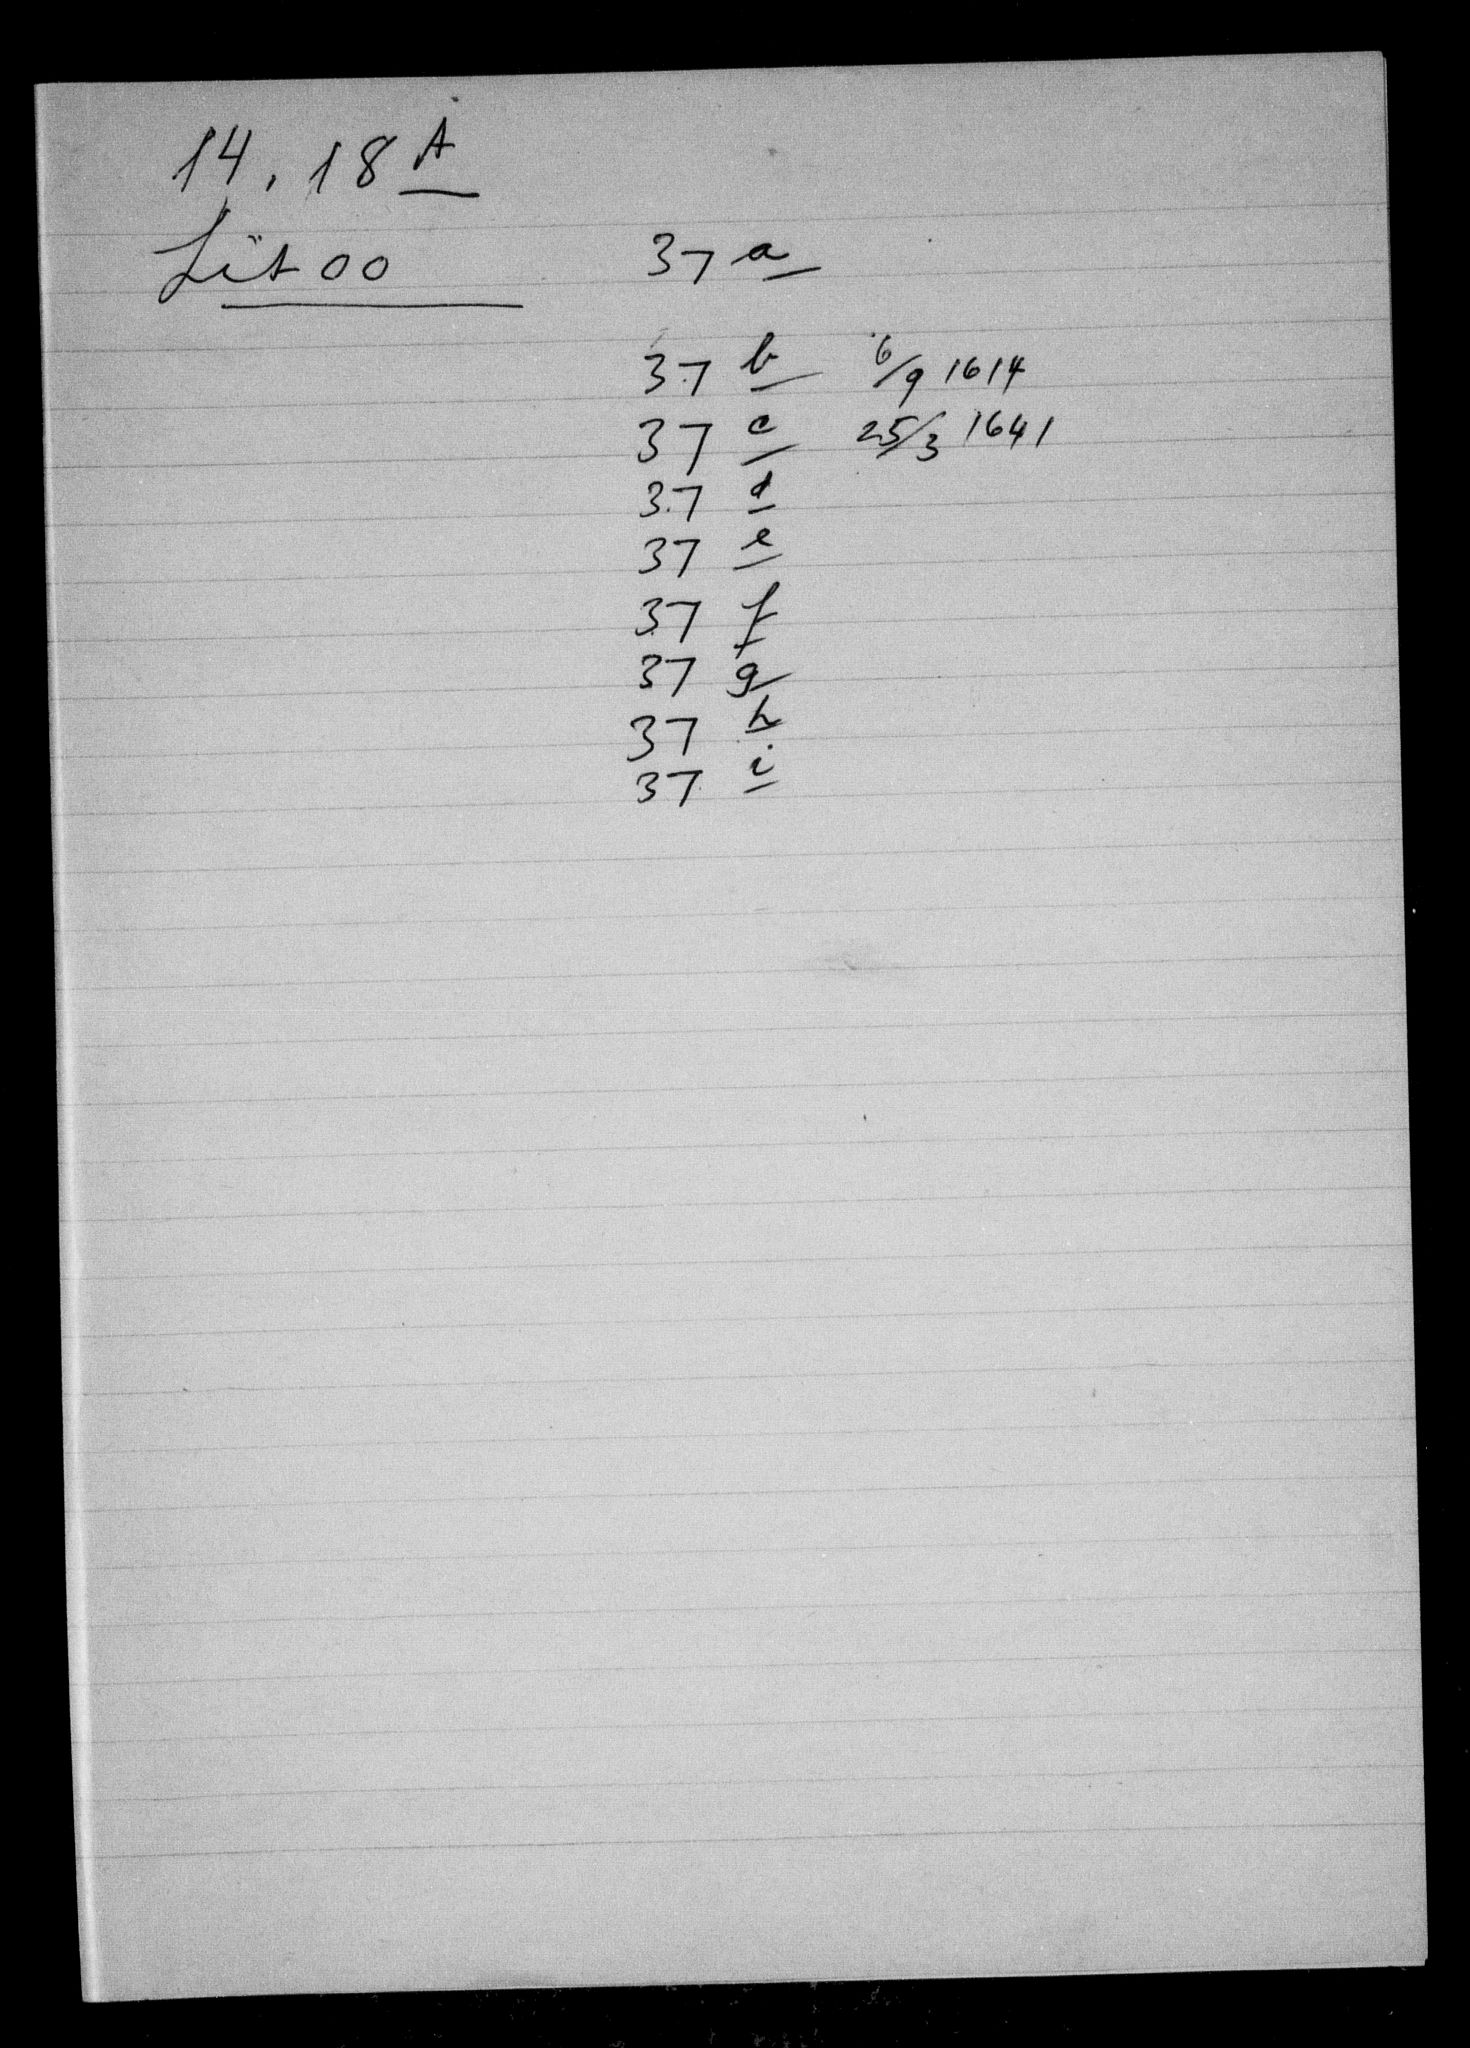 14.18 A
Lit OO 37 a
37 b 6/9 1614
37 c 25/3 1641
37 d
37 e
37 f
37 g
37 h
37 i